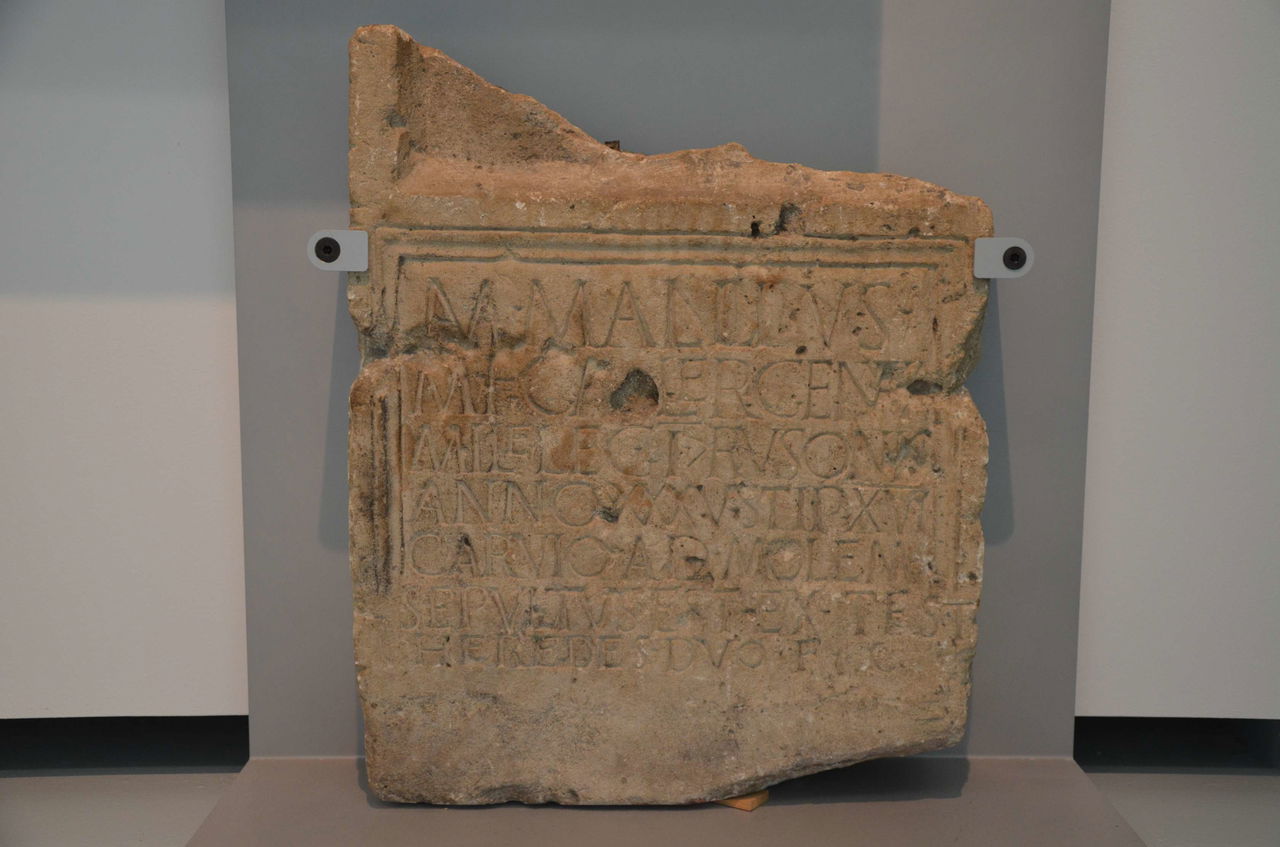 M·MALLIVS·
M·F·GALER·GENVA
MIL·LEG·I·RVSONIS
ANNO·XXXV·STIP·XVI
CARVIO·AD·MOLEM
SEPVLTVS·EST·EX·TEST
HEREDES·DVO·F·C